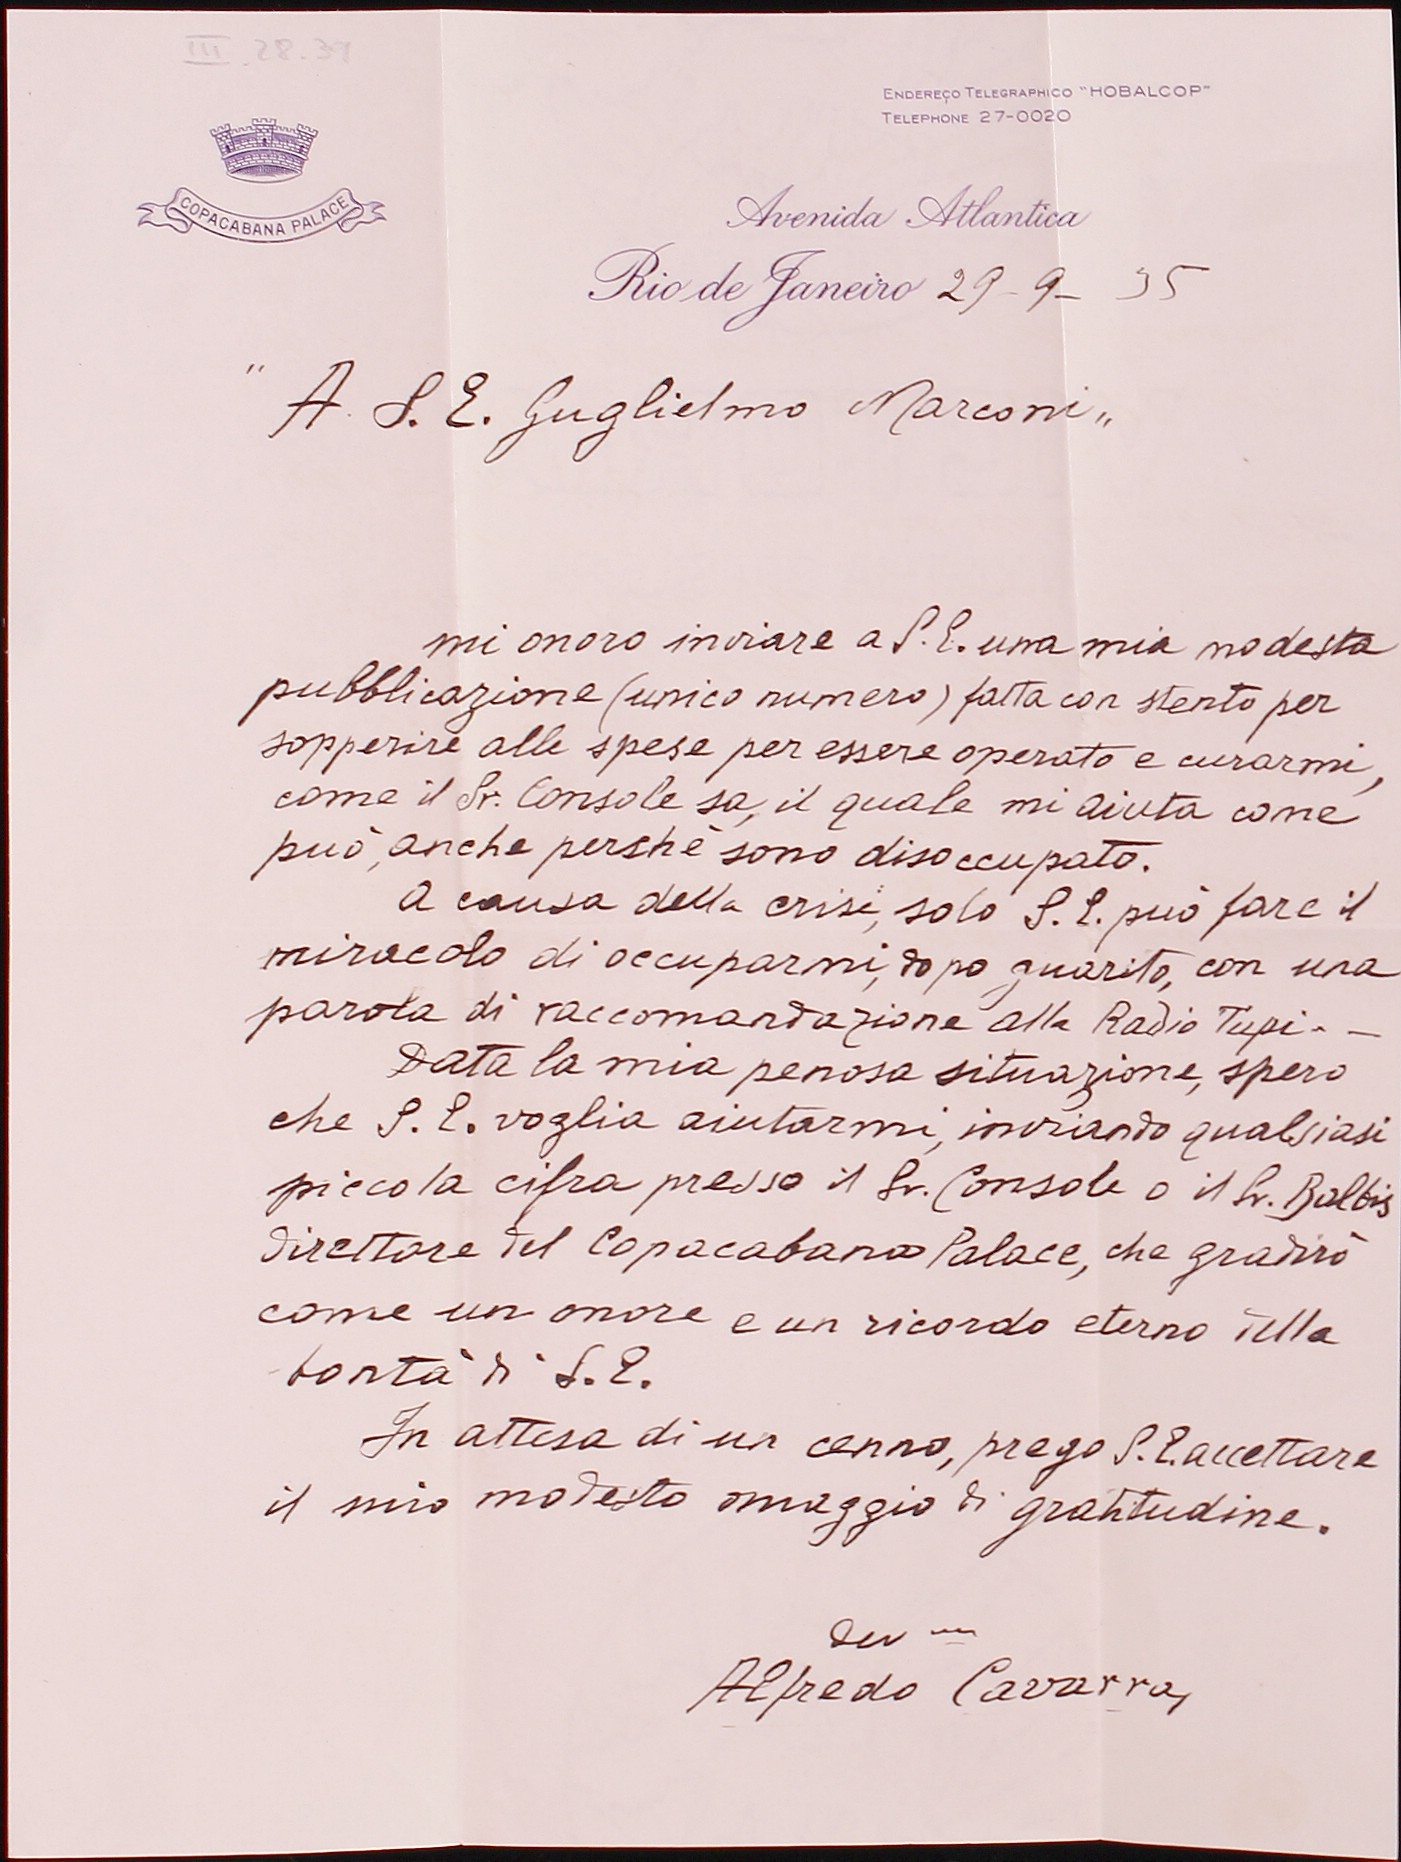 III 28.31
ENDEREÇO TELEGRAPHICO "HOBALCOP"
TELEPHONE 27-0020
COPACABANA PALACE
Avenida Atlantica
Rio de Janeiro 29-9- 35
" A S. E. Guglielmo Marconi "
mi onoro inviare a S. E. una mia modesta
pubblicazione (unico numero) fatta con stento per
sopperire alle spese per essere operato e curarmi,
come il Sr. Console sa, il quale mi aiuta come
può, anche perchè sono disoccupato.
A causa della crisi, solo S. E. può fare il
miracolo di occuparmi, dopo guarito, con una
parola di raccomandazione alla Radio Tupi - —
Data la mia penosa situazione, spero
che S. E. voglia aiutarmi, inviando qualsiasi
piccola cifra presso il Sr. Console o il Sr. Balbis
direttore del Copacabana Palace, che gradirò
come un onore e un ricordo eterno della
bontà di S. E.
In attesa di un cenno, prego S. E. accettare
il mio modesto omaggio di gratitudine.
dev mo
Alfredo Cavarra,